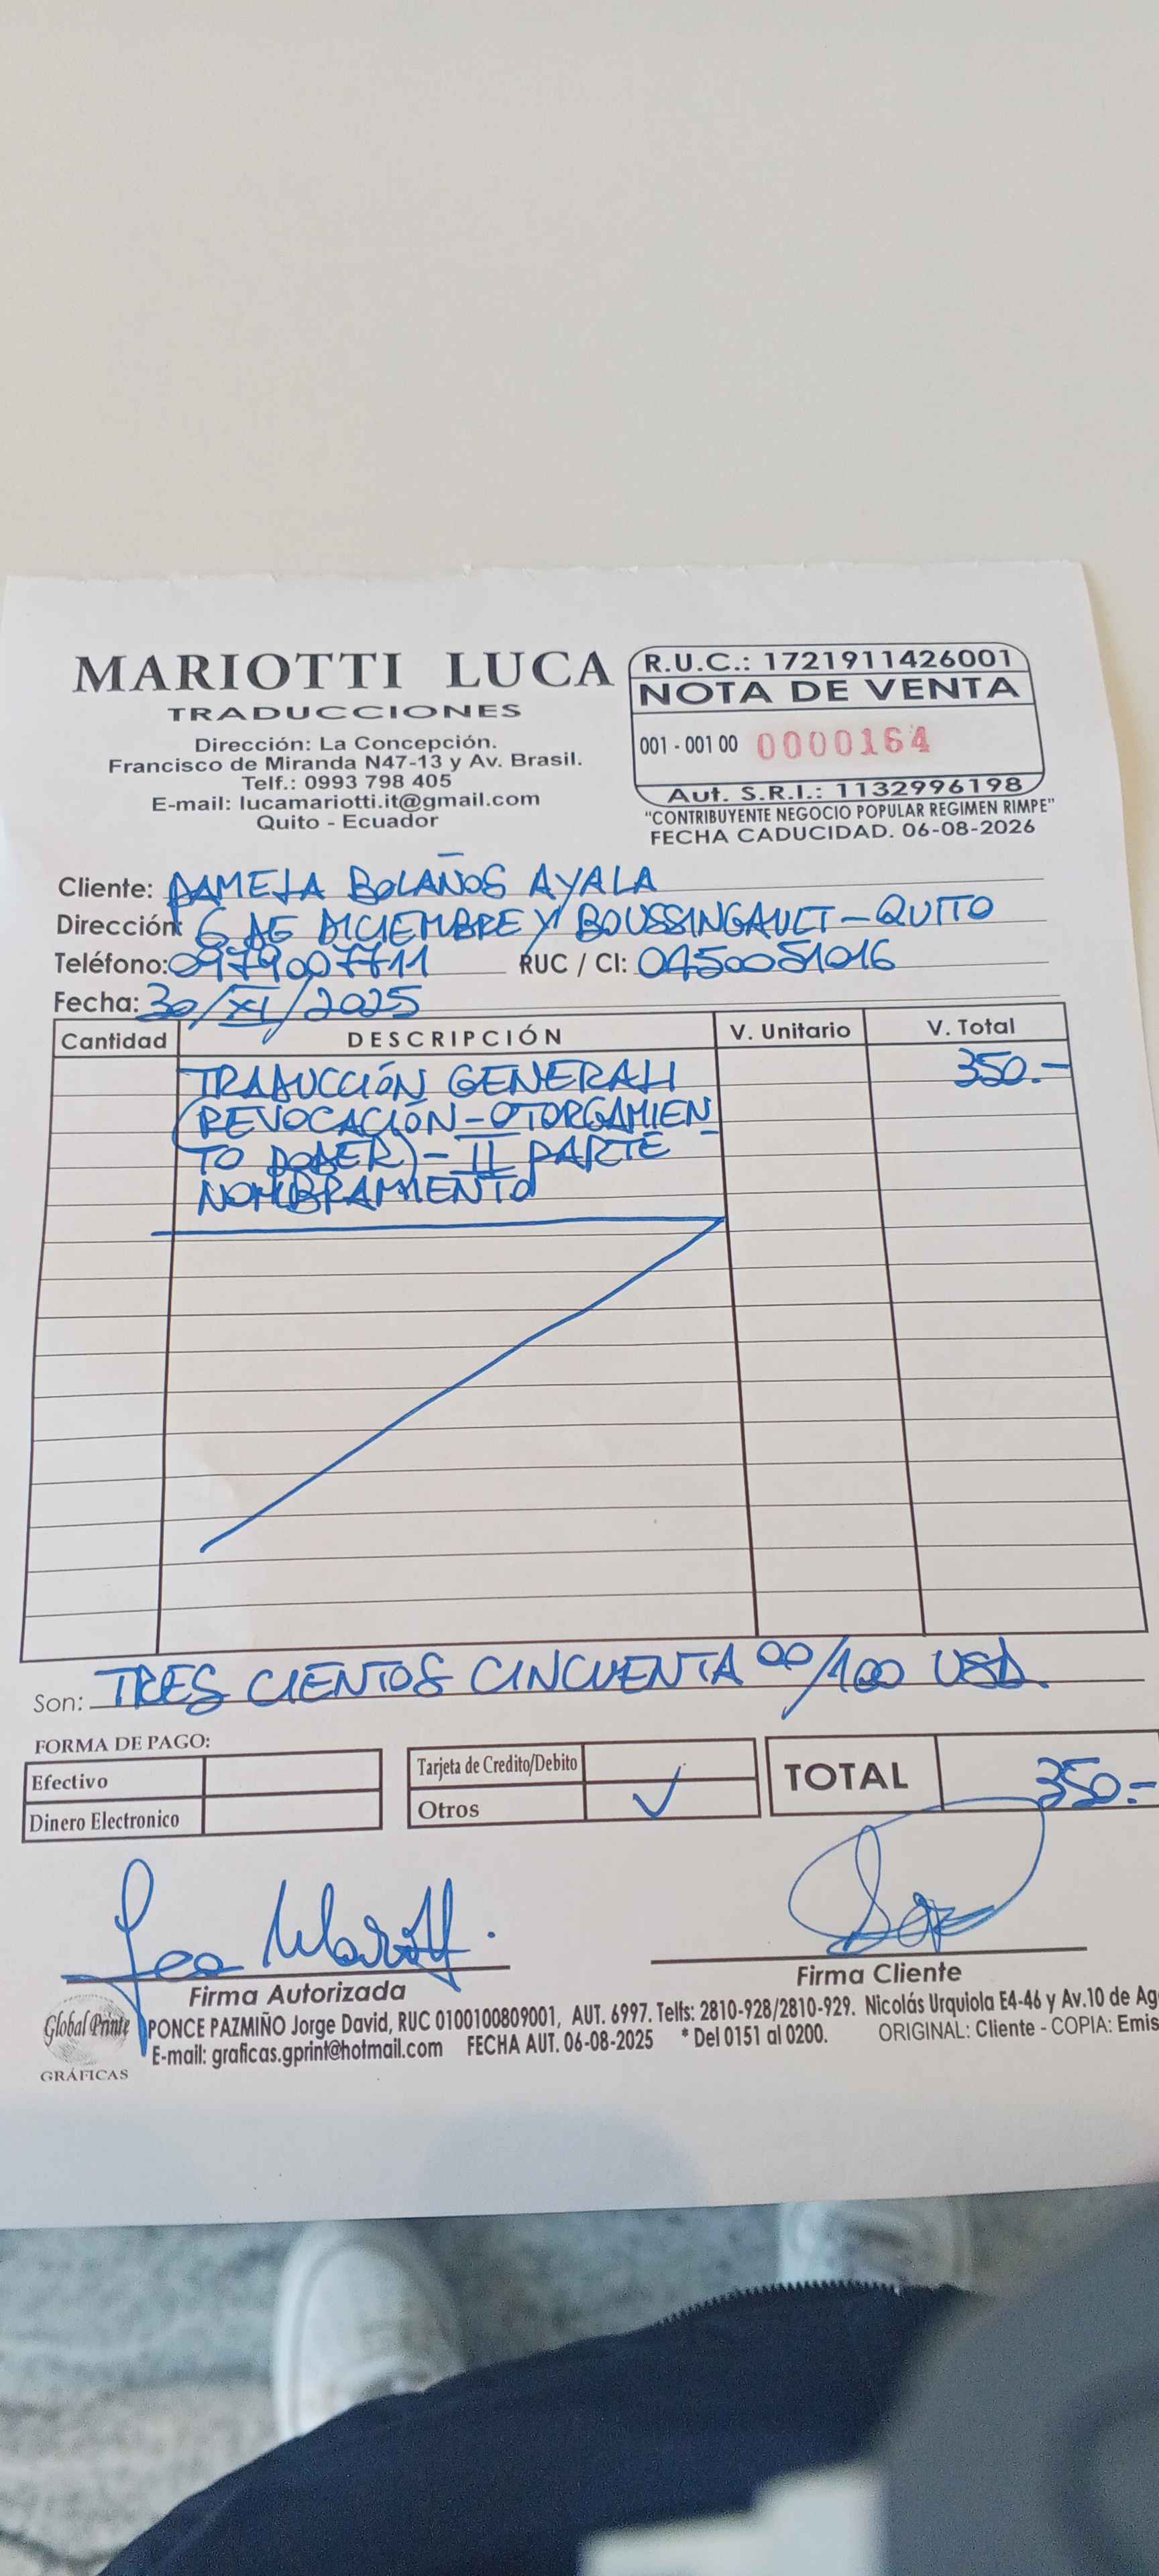 MARIOTTI LUCA
TRADUCCIONES
Dirección: La Concepción.
Francisco de Miranda N47-13 y Av. Brasil.
Telf.: 0993 798 405
E-mail: lucamariotti.it@gmail.com
Quito - Ecuador
R.U.C.: 1721911426001
NOTA DE VENTA
001 - 001 00 0000164
Aut. S.R.I.: 1132996198
"CONTRIBUYENTE NEGOCIO POPULAR REGIMEN RIMPE"
FECHA CADUCIDAD. 06-08-2026
Cliente: PAMELA BOLAÑOS AYALA
Dirección: 6 DE DICIEMBRE Y BOUSSINGAULT - QUITO
Teléfono: 0979007711 RUC / CI: 0450051016
Fecha: 30/XI/2025
Cantidad DESCRIPCIÓN V. Unitario V. Total
TRADUCCIÓN GENERALI 350.-
(REVOCACIÓN - OTORGAMIEN
TO PODER) - II PARTE
NOMBRAMIENTO
Son: TRES CIENTOS CINCUENTA 00/100 USD.
FORMA DE PAGO:
Efectivo
Dinero Electronico
Tarjeta de Credito/Debito
Otros ✓
TOTAL 350.-
Firma Autorizada
Firma Cliente
Global Print
GRÁFICAS
PONCE PAZMIÑO Jorge David, RUC 0100100809001, AUT. 6997. Telfs: 2810-928/2810-929. Nicolás Urquiola E4-46 y Av.10 de Ag
E-mail: graficas.gprint@hotmail.com FECHA AUT. 06-08-2025 * Del 0151 al 0200. ORIGINAL: Cliente - COPIA: Emis